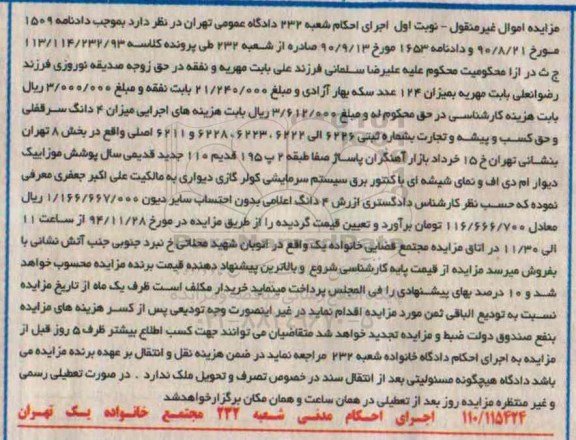 مزایده اموال غیرمنقول - نوبت اول اجرای احکام شعبه ۲۳۲ دادگاه عمومی تهران در نظر دارد بموجب دادنامه ۱۵۰۹
مورخ ۹۰/۸/۲۱ و دادنامه ۱۶۵۳ مورخ ۹۰/۹/۱۳ صادره از شعبه ۲۳۲ طی پرونده کلاسه ۱۱۳/۱۱۴/۲۳۲/۹۳
ج ث در ازا محکومیت محکوم علیه علیرضا سلمانی فرزند علی بابت مهریه و نفقه در حق زوجه صدیقه نوروزی فرزند
رضوانعلی بابت مهریه بمیزان ۱۲۴ عدد سکه بهار آزادی و مبلغ ۲۱/۲۴۰/۰۰۰ بابت نفقه و مبلغ ۳/۰۰۰/۰۰۰ ریال
بابت هزینه کارشناسی در حق محکوم له و مبلغ ۳/۶۱۲/۰۰۰ ریال بابت هزینه های اجرایی میزان ۴ دانگ سرقفلی
و حق کسب و پیشه و تجارت بشماره ثبتی ۶۲۲۶ الی ۶۲۲۲ ،۶۲۲۳ ،۶۲۲۸ و ۶۲۱۱ اصلی واقع در بخش ۸ تهران
بنشانی تهران خ ۱۵ خرداد بازار آهنگران پاساژ صفا طبقه ۲ پ ۱۹۵ قدیم ۱۱۰ جدید قدیمی سال پوشش موزاییک
دیوار ام دی اف و نمای شیشه ای با کنتور برق سیستم سرمایشی کولر گازی دیواری به مالکیت علی اکبر جعفری معرفی
نموده که حسب نظر کارشناس دادگستری ارزش ۴ دانگ اعلامی بدون احتساب سایر دیون ۱/۱۶۶/۶۶۷/۰۰۰ ریال
معادل ۱۱۶/۶۶۶/۷۰۰ تومان برآورد و تعیین قیمت گردیده را از طریق مزایده در مورخ ۹۴/۱۱/۲۸ از ساعت ۱۱
الی ۱۱/۳۰ در اتاق مزایده مجتمع قضایی خانواده یک واقع در اتوبان شهید محلاتی خ نبرد جنوبی جنب آتش نشانی با
بفروش میرسد مزایده از قیمت پایه کارشناسی شروع و بالاترین پیشنهاد دهنده قیمت برنده مزایده محسوب خواهد
شد و ۱۰ درصد بهای پیشنهادی را فی المجلس پرداخت مینماید خریدار مکلف است ظرف یک ماه از تاریخ مزایده
نسبت به تودیع الباقی ثمن مورد مزایده اقدام نماید در غیر اینصورت وجه تودیعی پس از کسر هزینه های مزایده
بنفع صندوق دولت ضبط و مزایده تجدید خواهد شد متقاضیان می توانند جهت کسب اطلاع بیشتر ظرف ۵ روز قبل از
مزایده به اجرای احکام دادگاه خانواده شعبه ۲۳۲ مراجعه نماید در ضمن هزینه نقل و انتقال بر عهده برنده مزایده می
باشد دادگاه هیچگونه مسئولیتی بعد از انتقال سند در خصوص تصرف و تحویل ملک ندارد . در صورت تعطیلی رسمی
و غیر منتظره مزایده روز بعد از تعطیلی در همان ساعت و همان مکان برگزار خواهد شد
۱۱۰/۱۱۵۴۲۴ اجرای احکام مدنی شعبه ۲۳۲ مجتمع خانواده یک تهران